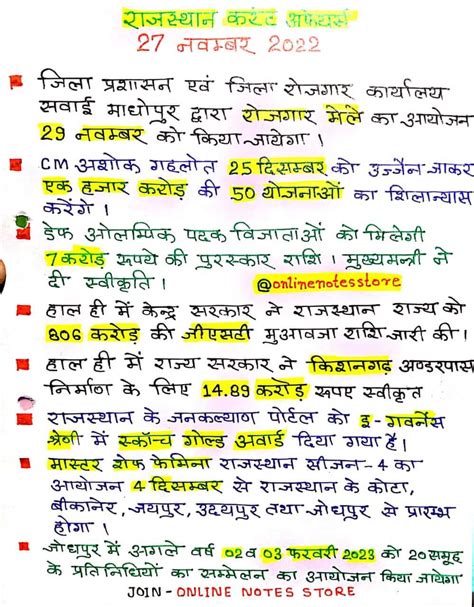 राजस्थान करंट अफेयर्स
27 नवम्बर 2022
जिला प्रशासन एवं जिला रोजगार कार्यालय
सवाई माधोपुर द्वारा रोजगार मेले का आयोजन
29 नवम्बर को किया जायेगा ।
CM अशोक गहलोत 25 दिसम्बर को उज्जैन जाकर
एक हजार करोड़ की 50 योजनाओं का शिलान्यास
करेंगे ।
डेफ ओलम्पिक पदक विजाताओं को मिलेगी
7 करोड़ रूपये की पुरस्कार राशि । मुख्यमन्त्री ने
दी स्वीकृति ।
@onlinenotesstore
हाल ही में केन्द्र सरकार ने राजस्थान राज्य को
806 करोड़ की जीएसटी मुआवजा राशि जारी की ।
हाल ही में राज्य सरकार ने किशनगढ़ अण्डरपास
निर्माण के लिए 14.89 करोड़ रूपए स्वीकृत
राजस्थान के जनकल्याण पोर्टल को इ-गवर्नेस
श्रेणी में स्कॉच गोल्ड अवार्ड दिया गया है ।
मास्टर शेफ फेमिना राजस्थान सीजन-4 का
आयोजन 4 दिसम्बर से राजस्थान के कोटा,
बीकानेर, जयपुर, उदयपुर तथा जोधपुर से प्रारम्भ
होगा ।
जोधपुर में अगले वर्ष 02 व 03 फरवरी 2023 को 20 समूह
के प्रतिनिधियों का सम्मेलन का आयोजन किया जायेगा
JOIN - ONLINE NOTES STORE